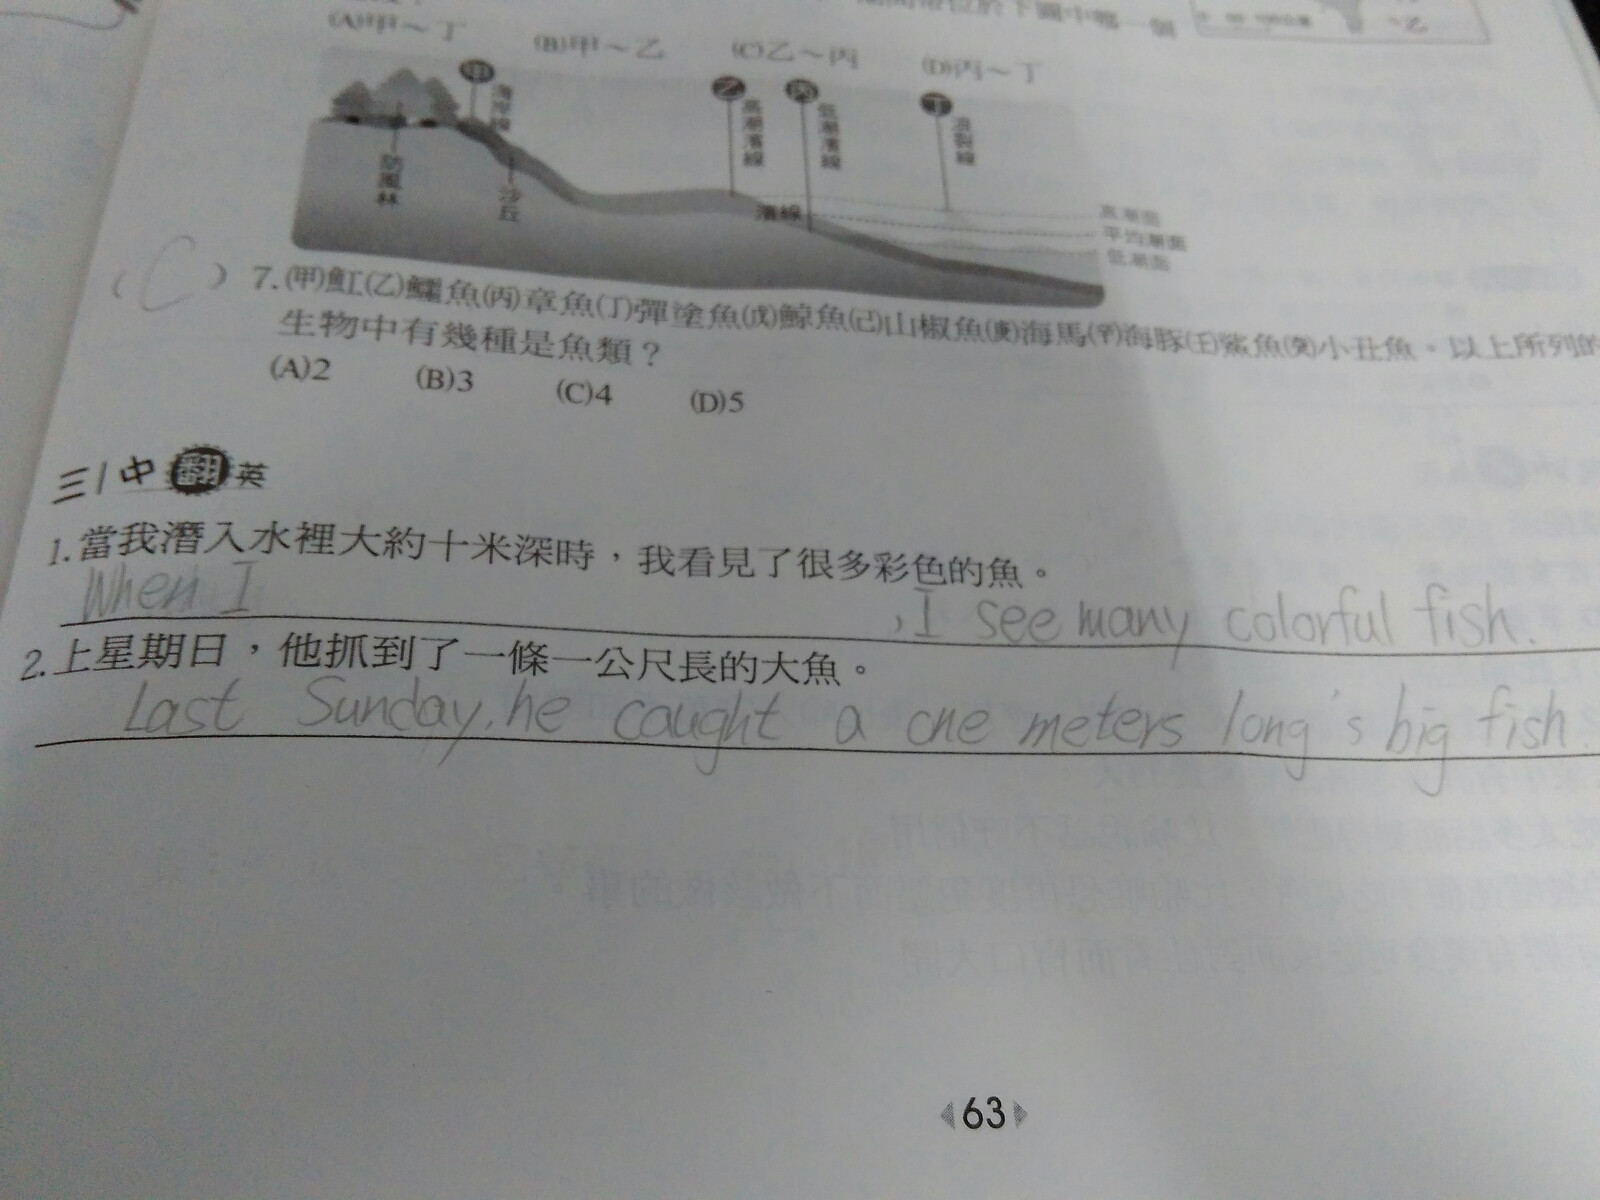 (A)甲～丁 (B)甲～乙 (C)乙～丙 (D)丙～丁
甲 乙 丙 丁
海岸線 高潮濱線 低潮濱線 浪裂線
防風林 沙丘 濱線
高潮面
平均潮面
低潮面
(C) 7.(甲)魟(乙)鱷魚(丙)章魚(丁)彈塗魚(戊)鯨魚(己)山椒魚(庚)海馬(辛)海豚(壬)鯊魚(癸)小丑魚。以上所列的
生物中有幾種是魚類？
(A)2 (B)3 (C)4 (D)5
三、中翻英
1.當我潛入水裡大約十米深時，我看見了很多彩色的魚。
When I , I see many colorful fish.
2.上星期日，他抓到了一條一公尺長的大魚。
Last Sunday, he caught a one meters long's big fish.
63